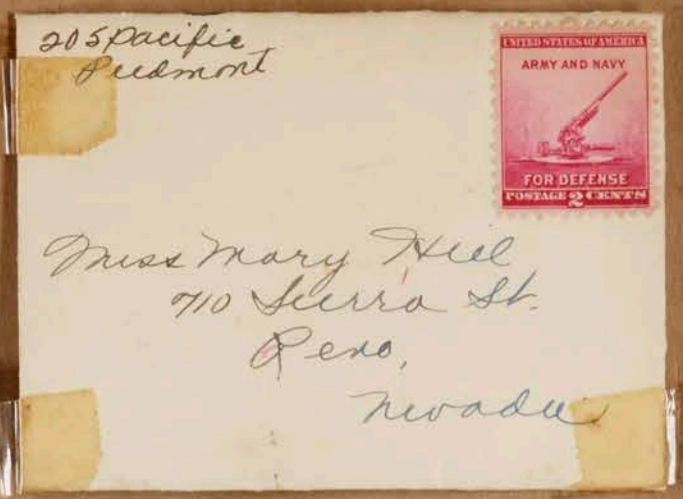 205 Pacific
Piedmont
UNITED STATES OF AMERICA
ARMY AND NAVY
FOR DEFENSE
POSTAGE 2 CENTS
Miss Mary Hill
710 Sierra St.
Reno,
Nevada